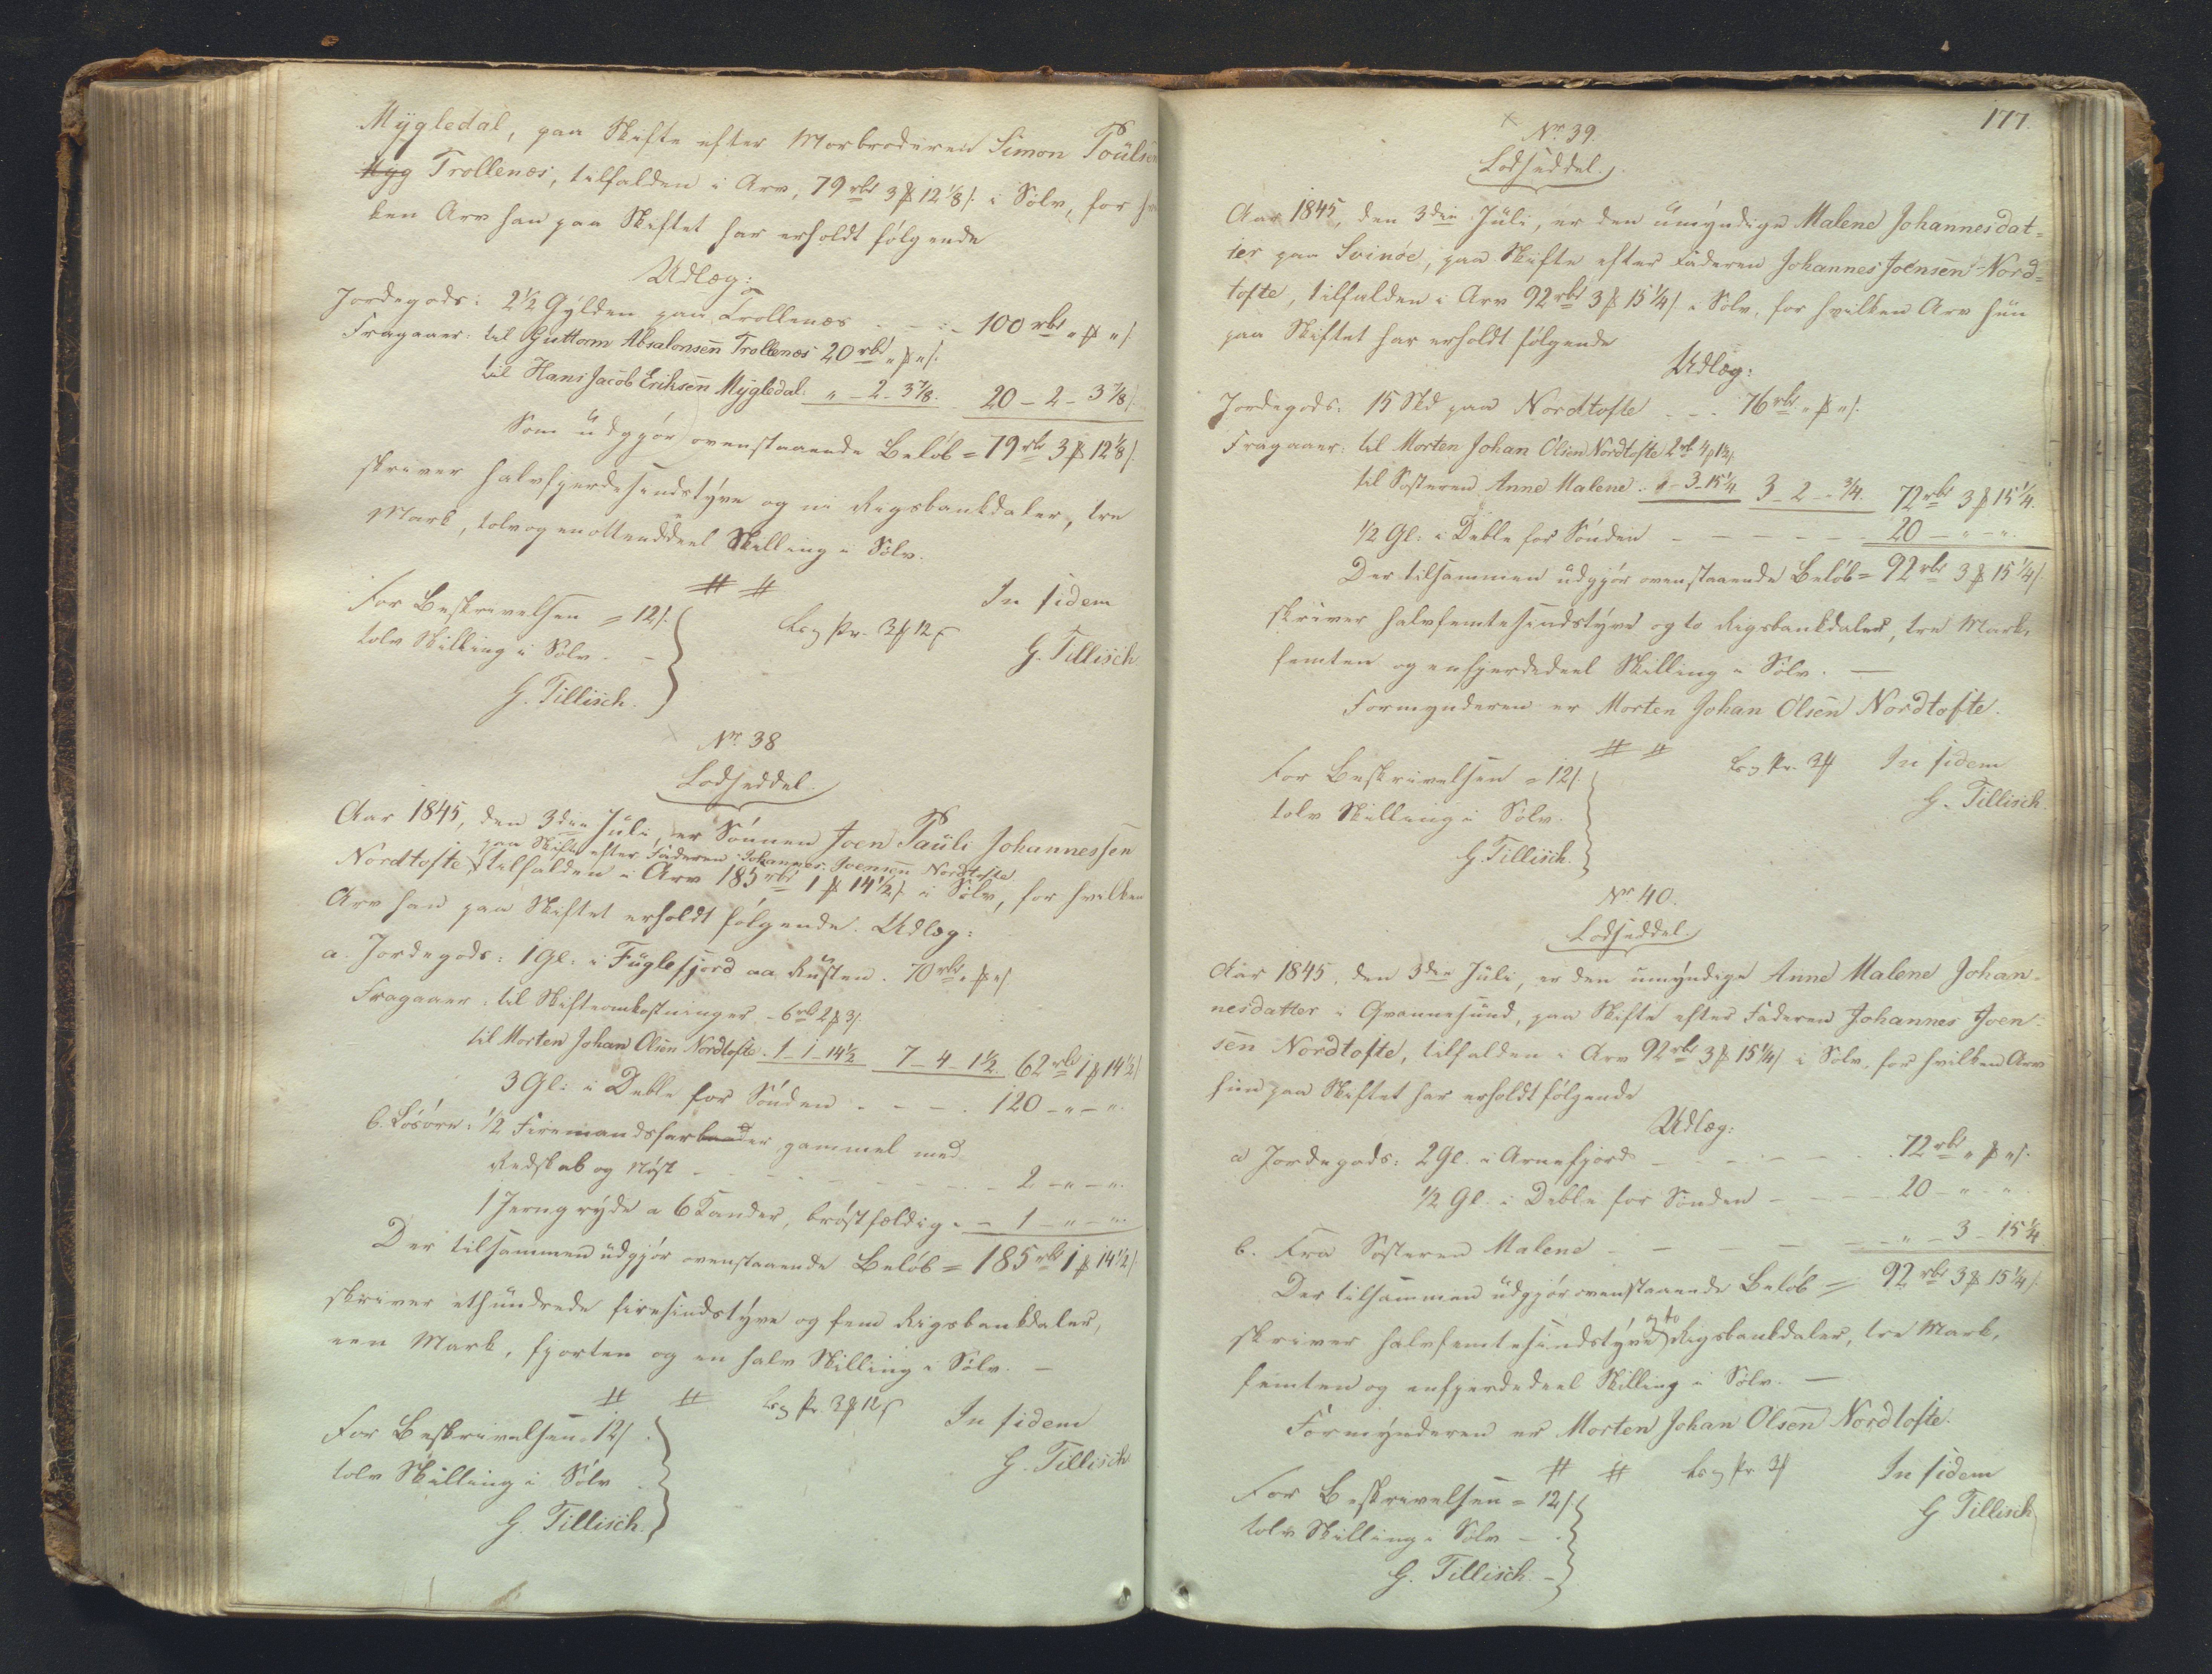 Mygledal, paa Skifte efter Morbroderen Simon Poulsen
Myg Trollenæs, tilfalden i Arv, 79 rbd 3 ℔ 12 1/8 ß i Sølv, for
ken Arv han paa Skiftet har erholdt følgende
Udlæg:
Jordegods: 2½ Gylden paa Trollenæs - - - 100 rbd " ℔ " ß
Fragaaer: til Guttorm Absalonsen Trollenæs 20 rbd " ℔ " ß
til Hans Jacob Eriksen Mygledal " - 2 - 3 7/8. 20 - 2 - 3 7/8 ß
Som udgjør ovenstaaende Beløb = 79 rbd 3 ℔ 12 1/8 ß
skriver halvfjerdesindstyve og ni Rigsbankdaler, tre
Mark, tolv og en ottenddeel Skilling i Sølv.
For Beskrivelsen = 12 ß.
tolv Skilling i Sølv. -
G. Tillisch.
In fidem
G. Tillisch.
Nr 38
Lodseddel.
Aar 1845, den 3die Juli, er Sønnen Joen Pauli Johannessen
paa Skifte efter Faderen Johannes Joensen Nordtofte
Nordtofte tilfalden i Arv 185 rbd 1 ℔ 14½ ß i Sølv, for hvilken
Arv han paa Skiftet erholdt følgende Udlæg:
a. Jordegods: 1 Gl: i Fuglefjord aa Rusten. 70 rbd " ℔ " ß
Fragaaer: til Skifteomkostninger - 6 rbd 2 ℔ 3 ß.
til Morten Johan Olsen Nordtofte. 1 - 1 - 14½ 7 - 4 - 1½. 62 rbd 1 ℔ 14½ ß
3 Gl: i Deble for Sønden - - - . 120 - " - ".
b. Løsøre: ½ Firemandsfar gammel med
Redskab og Nøst - - - - - - 2 - " - ".
1 Jerngryde a 6 Kander, brøstfældig. - 1 - " - ".
Der tilsammen udgjør ovenstaaende Beløb = 185 rbd 1 ℔ 14½ ß
skriver ethundrede firesindstyve og fem Rigsbankdaler,
een Mark, fjorten og en halv Skilling i Sølv. -
For Beskrivelsen 12 ß.
tolv Skilling i Sølv
G. Tillisch.
In fidem
G. Tillisch
177.
Nr 39.
Lodseddel.
Aar 1845, den 3die Juli, er den umyndige Malene Johannesdat=
ter paa Svinøe, paa Skifte efter Faderen Johannes Joensen Nord=
tofte, tilfalden i Arv 92 rbd 3 ℔ 15¼ ß i Sølv, for hvilken Arv hun
paa Skiftet har erholdt følgende
Udlæg:
Jordegods: 15 Skd paa Nordtofte - - . 76 rbd " ℔ " ß.
Fragaaer: til Morten Johan Olsen Nordtofte 2 rbd 4 ℔ 1½ ß.
til Søsteren Anne Malene. " - 3 - 15¼ 3 - 2 - " ¾. 72 rbd 3 ℔ 15¼.
½ Gl: i Deble for Sønden - - - - - - 20 - " - ".
Der tilsammen udgjør ovenstaaende Beløb = 92 rbd 3 ℔ 15¼ ß.
skriver halvfemtesindstyve og to Rigsbankdaler, tre Mark,
femten og enfjerdedeel Skilling i Sølv. -
Formynderen er Morten Johan Olsen Nordtofte.
For Beskrivelsen = 12 ß.
tolv Skilling i Sølv.
G. Tillisch.
In fidem
G. Tillisch.
Nr 40.
Lodseddel.
Aar 1845, den 3die Juli, er den umyndige Anne Malene Johan-
nesdatter i Qvannesund, paa Skifte efter Faderen Johannes Joen-
sen Nordtofte, tilfalden i Arv 92 rbd 3 ℔ 15¼ ß i Sølv, for hvilken Arv
hun paa Skiftet har erholdt følgende
Udlæg:
a Jordegods: 2 Gl. i Arnefjord - - - - - - . 72 rbd " ℔ " ß.
½ Gl. i Deble for Sønden - - - 20 - " - "
b. Fra Søsteren Malene - - - - - " - 3 - 15¼.
Der tilsammen udgjør ovenstaaende Beløb = 92 rbd 3 ℔ 15¼ ß.
skriver halvfemtesindstyve og to Rigsbankdaler, tre Mark,
femten og enfjerdedeel Skilling i Sølv. -
Formynderen er Morten Johan Olsen Nordtofte.
For Beskrivelsen = 12 ß
tolv Skilling i Sølv - .
G. Tillisch -
In fidem
G Tillisch